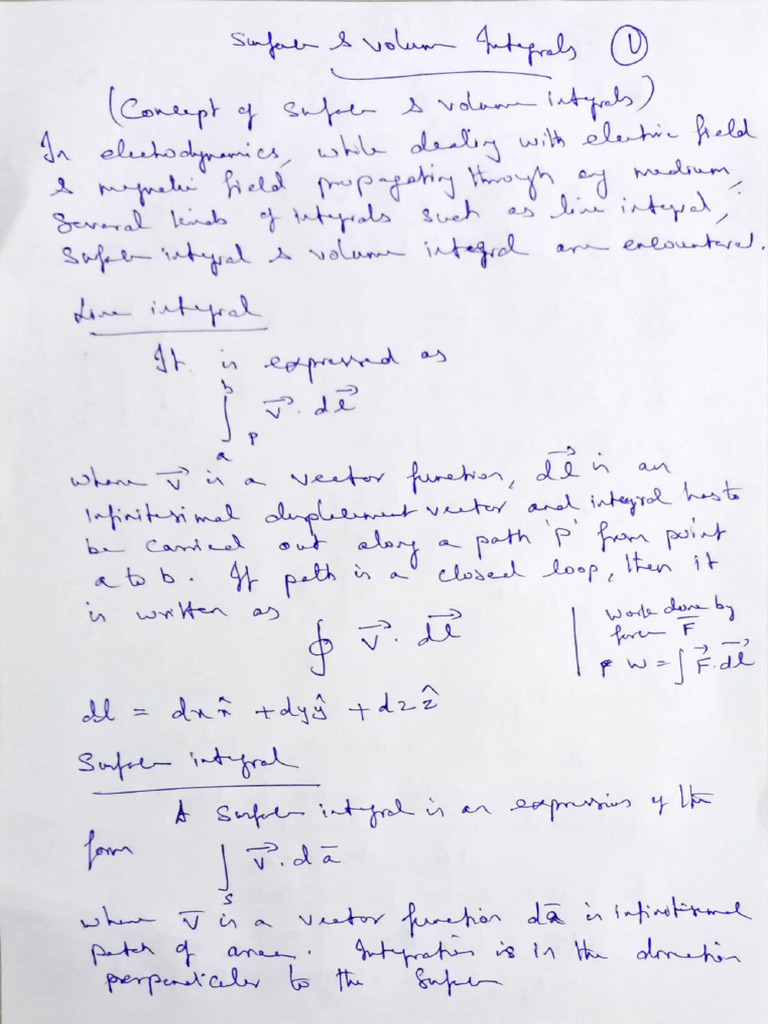 Surface & volume Integrals ①
(Concept of Surface & volume integrals)
In electrodynamics, while dealing with electric field
& magnetic field propagating through any medium,
Several kinds of integrals such as line integral,
Surface integral & volume integral are encountered.
Line integral
It is expressed as
∫ₐᵇ P v⃗ . dl⃗
where v⃗ is a vector function, dl⃗ is an
infinitesimal displacement vector and integral has to
be carried out along a path 'P' from point
a to b. If path is a closed loop, then it
is written as
∮ v⃗ . dl⃗
work done by
force F̅
W = ∫ F⃗ . dl⃗
dl = dx x̂ + dy ŷ + dz ẑ
Surface integral
A Surface integral is an expression of the
form ∫ₛ v⃗ . da̅
where v̅ is a vector function da̅ is infinitesimal
patch of area. Integration is in the direction
perpendicular to the Surface